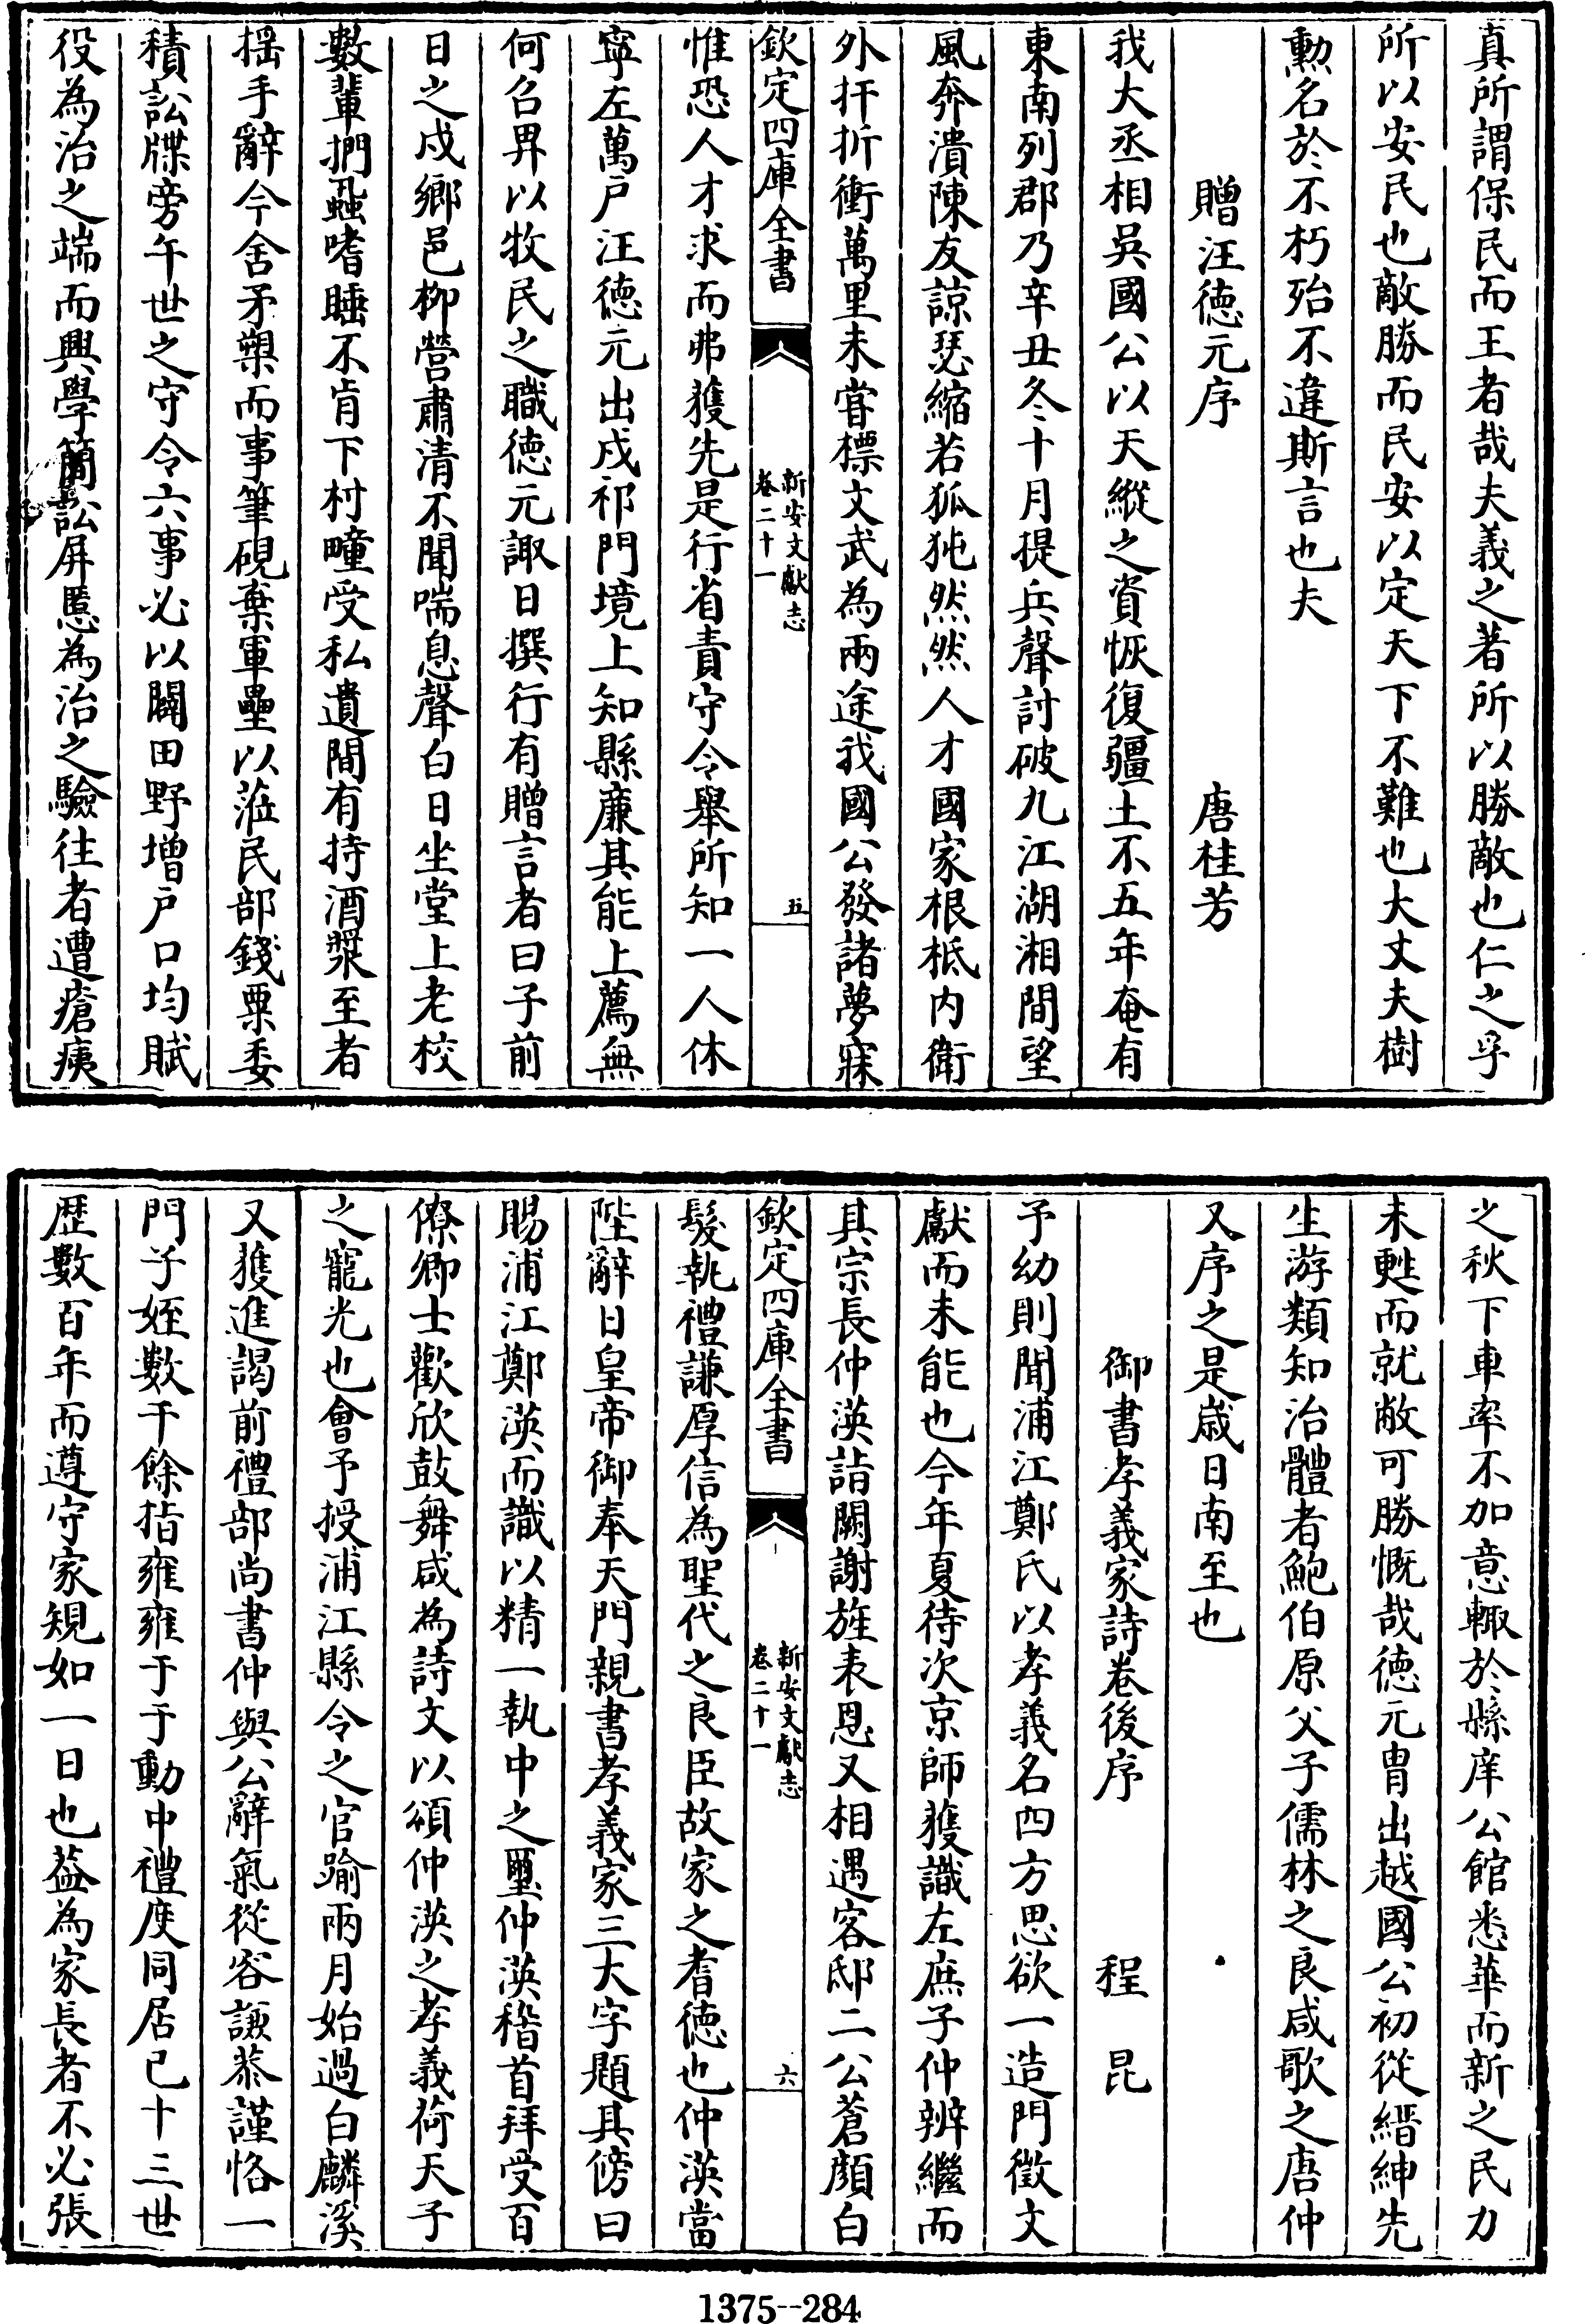 真所謂保民而王者哉夫義之著所以勝敵也仁之孚
所以安民也敵勝而民安以定天下不難也大丈夫樹
勲名於不朽殆不違斯言也夫
贈汪徳元序　唐桂芳
我大丞相吳國公以天縱之資恢復疆土不五年奄有
東南列郡乃辛丑冬十月提兵聲討破九江湖湘間望
風奔潰陳友諒瑟縮若狐㹠然然人才國家根柢内衛
外扞折衝萬里未嘗標文武為兩途我國公發諸夢寐
欽定四庫全書
新安文獻志
卷二十一
五
惟恐人才求而弗獲先是行省責守令舉所知一人休
寧左萬戸汪徳元出戍祁門境上知縣亷其能上薦無
何召畀以牧民之職徳元諏日撰行有贈言者曰子前
日之戍鄉邑栁營肅清不聞喘息聲白日坐堂上老校
數輩捫蝨嗜睡不肯下村疃受私遺間有持酒漿至者
揺手辭今舍矛槊而事筆硯棄軍壘以蒞民部錢粟委
積訟牒旁午世之守令六事必以闢田野增戸口均賦
役為治之端而興學簡訟屏慝為治之驗往者遭瘡痍
之秋下車率不加意輙於縣庠公館悉葺而新之民力
未甦而就敝可勝慨哉徳元胄出越國公初從縉紳先
生游類知治體者鮑伯原父子儒林之良咸歌之唐仲
又序之是嵗日南至也
御書孝義家詩卷後序　程昆
予幼則聞浦江鄭氏以孝義名四方思欲一造門徵文
獻而未能也今年夏待次京師獲識左庶子仲辨繼而
其宗長仲渶詣闕謝旌表恩又相遇客邸二公蒼顔白
欽定四庫全書
新安文獻志
卷二十一
六
髮執禮謙厚信為聖代之良臣故家之耆徳也仲渶當
陛辭日皇帝御奉天門親書孝義家三大字題其傍曰
賜浦江鄭渶而識以精一執中之璽仲渶稽首拜受百
僚卿士歡欣鼓舞咸為詩文以頌仲渶之孝義荷天子
之寵光也會予授浦江縣令之官踰兩月始過白麟溪
又獲進謁前禮部尚書仲與公辭氣從容謙恭謹恪一
門子姪數千餘指雍雍于于動中禮度同居已十三世
歴數百年而遵守家規如一日也葢為家長者不必張
1375--284